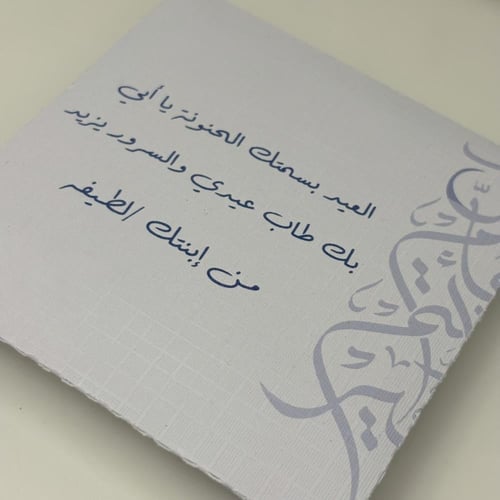 العيد بسمتك الحنونة يا أبي
بك طاب عيدي والسرور يزيد
من إبنتك لطيفه